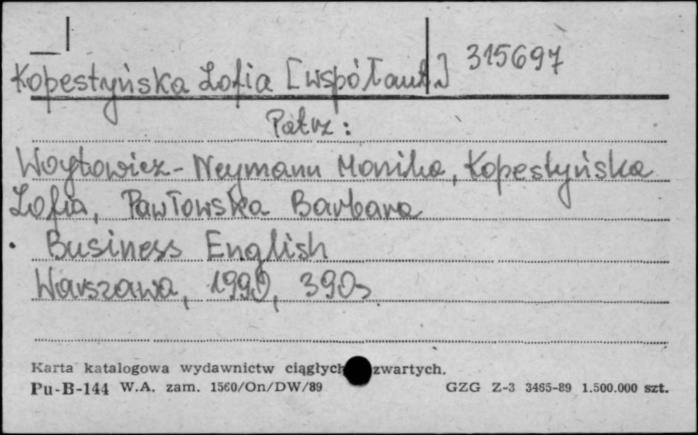 Kopestyńska Zofia [współaut.] 315697
Patrz:
Woytowicz-Neymann Monika, Kopestyńska
Zofia, Pawłowska Barbara
Business English
Warszawa, 1990, 390s
Karta katalogowa wydawnictw ciągłych zwartych.
Pu-B-144 W.A. zam. 1560/On/DW/89 GZG Z-3 3465-89 1.500.000 szt.